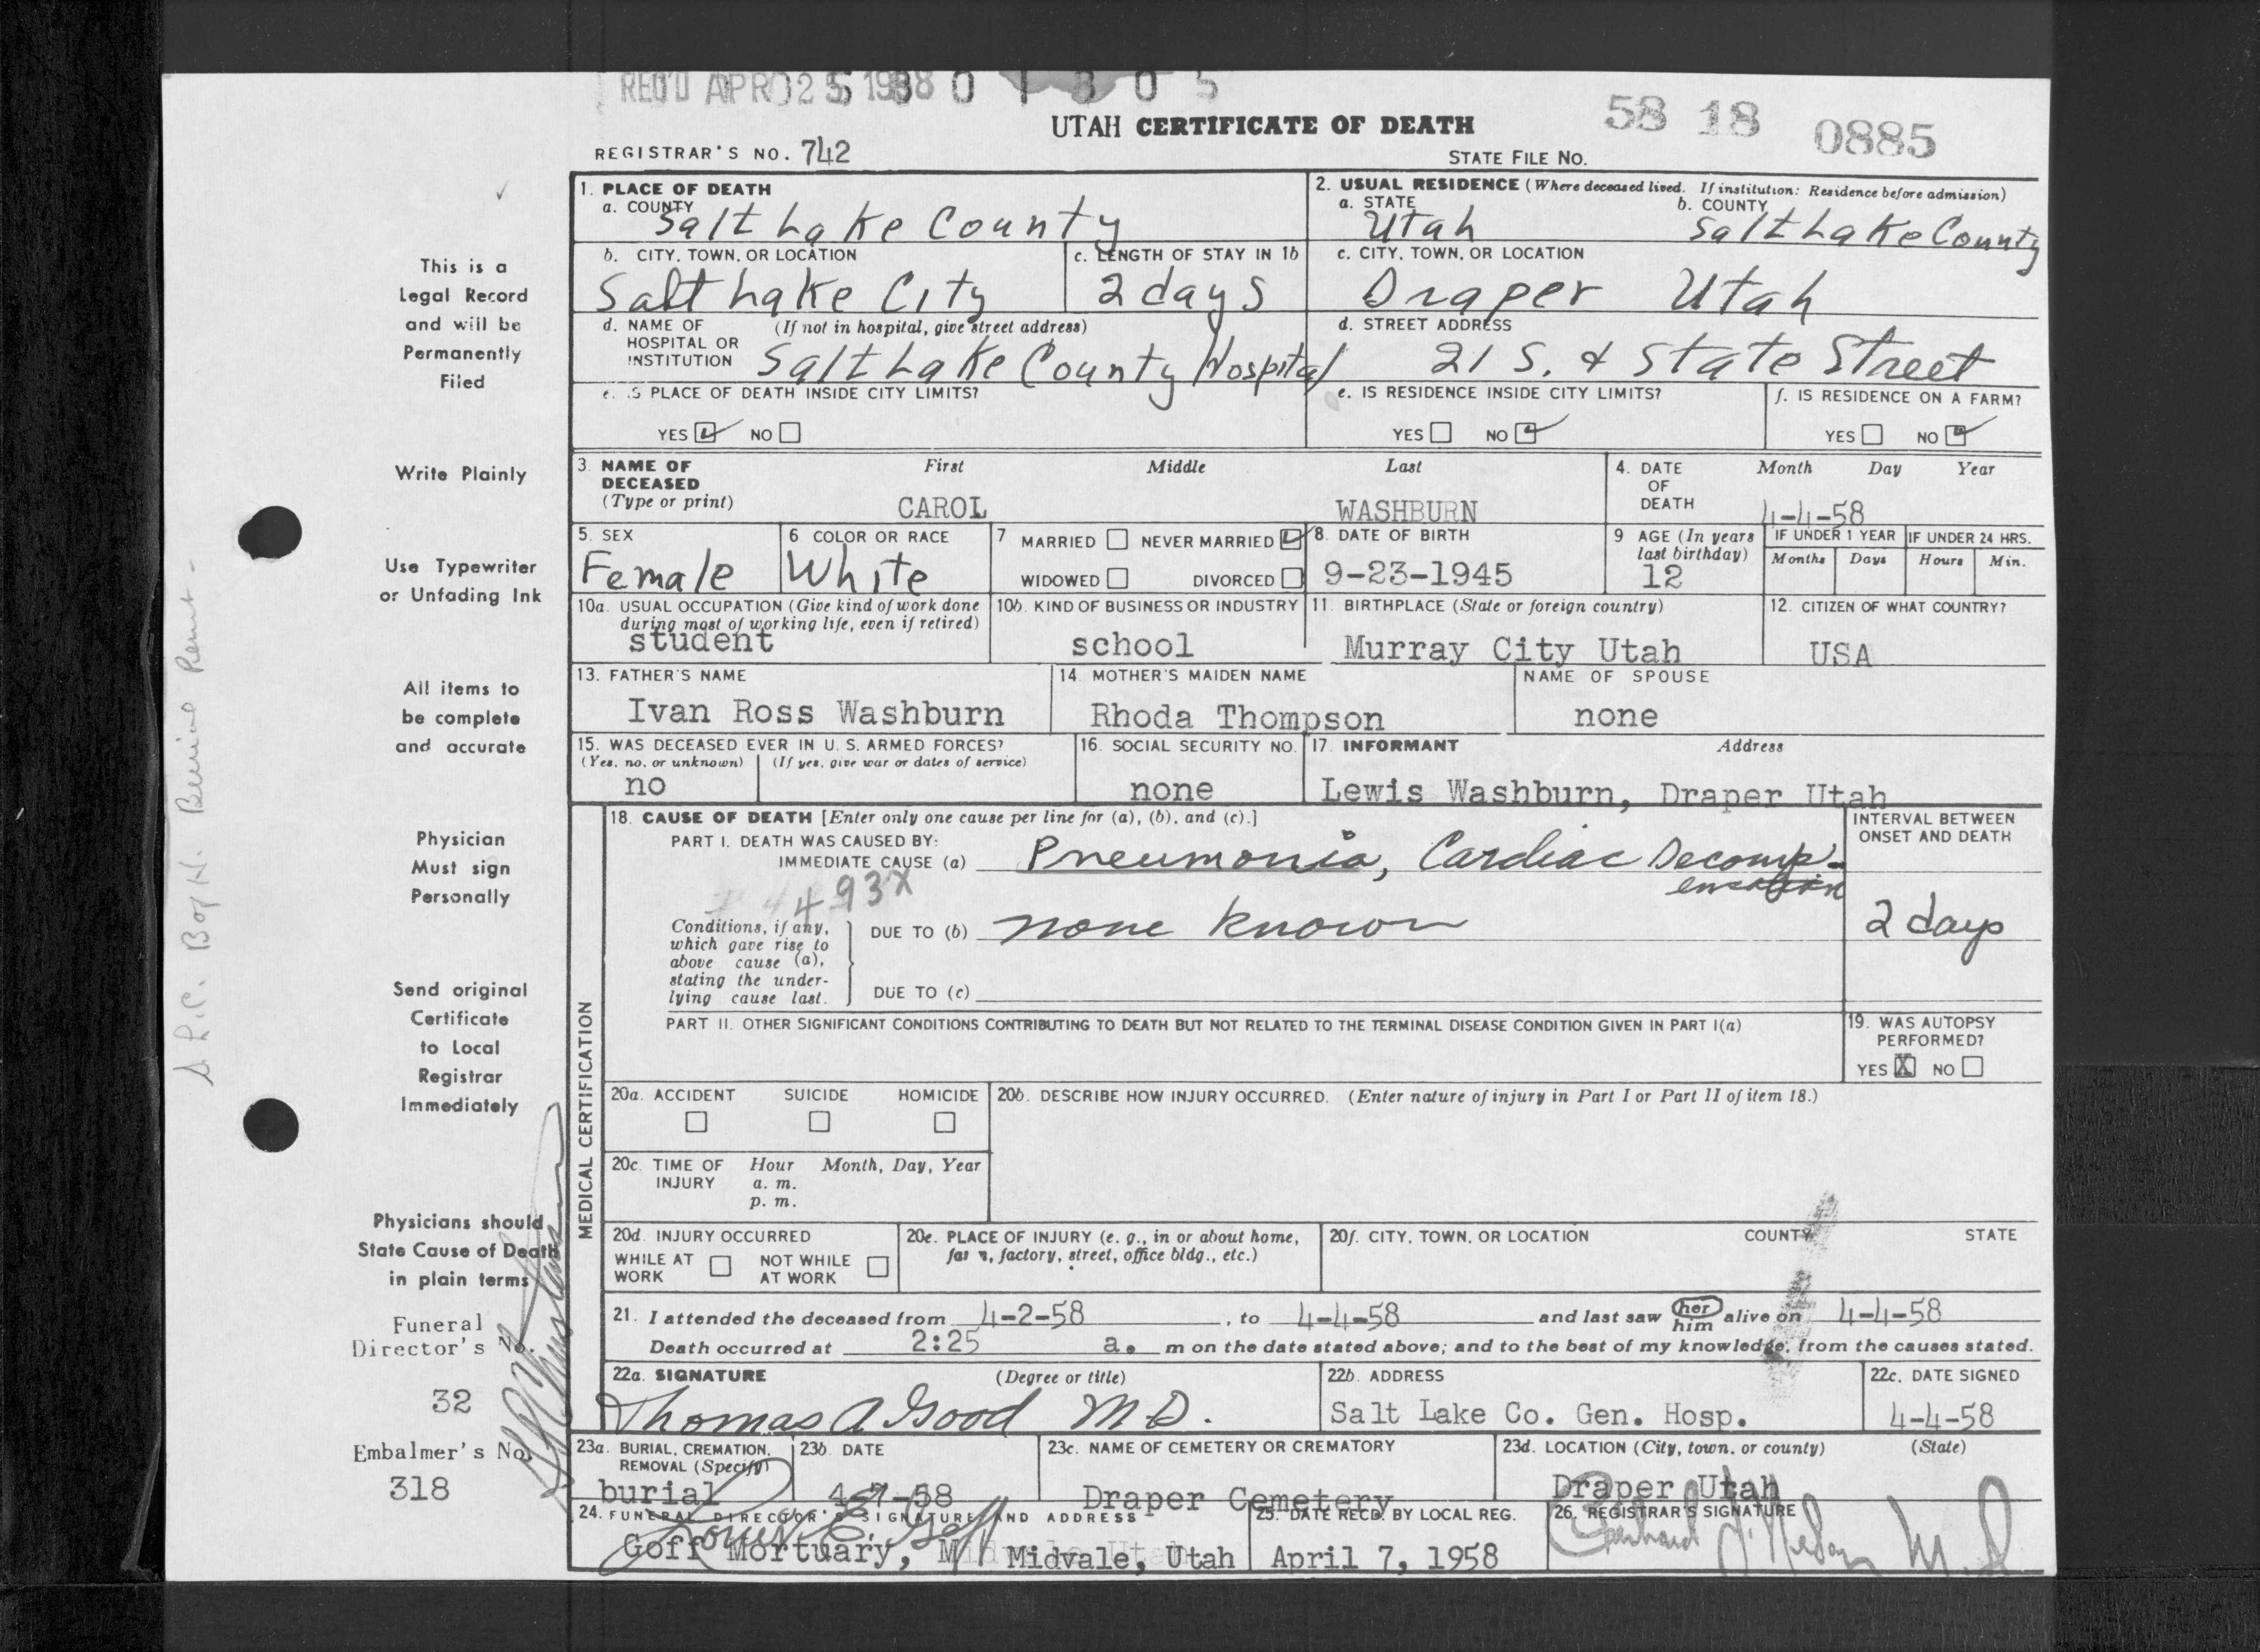 REC'D APR 25 1958
5 8 0 1 8 0 5
58 18 0885
UTAH CERTIFICATE OF DEATH
REGISTRAR'S NO. 742
STATE FILE NO.
1. PLACE OF DEATH
a. COUNTY
Salt Lake County
2. USUAL RESIDENCE (Where deceased lived. If institution: Residence before admission)
a. STATE
Utah
b. COUNTY
Salt Lake County
b. CITY, TOWN, OR LOCATION
Salt Lake City
c. LENGTH OF STAY IN 1b
2 days
c. CITY, TOWN, OR LOCATION
Draper Utah
d. NAME OF HOSPITAL OR INSTITUTION
(If not in hospital, give street address)
Salt Lake County Hospital
d. STREET ADDRESS
21 S. & State Street
e. IS PLACE OF DEATH INSIDE CITY LIMITS?
YES NO
e. IS RESIDENCE INSIDE CITY LIMITS?
YES NO
f. IS RESIDENCE ON A FARM?
YES NO
3. NAME OF DECEASED
(Type or print)
First Middle Last
CAROL WASHBURN
4. DATE OF DEATH
Month Day Year
4-4-58
5. SEX
Female
6 COLOR OR RACE
White
7 MARRIED NEVER MARRIED
WIDOWED DIVORCED
8. DATE OF BIRTH
9-23-1945
9 AGE (In years last birthday)
12
IF UNDER 1 YEAR
Months Days
IF UNDER 24 HRS.
Hours Min.
10a. USUAL OCCUPATION (Give kind of work done during most of working life, even if retired)
student
10b. KIND OF BUSINESS OR INDUSTRY
school
11. BIRTHPLACE (State or foreign country)
Murray City Utah
12. CITIZEN OF WHAT COUNTRY?
USA
13. FATHER'S NAME
Ivan Ross Washburn
14. MOTHER'S MAIDEN NAME
Rhoda Thompson
NAME OF SPOUSE
none
15. WAS DECEASED EVER IN U. S. ARMED FORCES?
(Yes, no, or unknown) (If yes, give war or dates of service)
no
16. SOCIAL SECURITY NO.
none
17. INFORMANT Address
Lewis Washburn, Draper Utah
MEDICAL CERTIFICATION
18. CAUSE OF DEATH [Enter only one cause per line for (a), (b), and (c).]
INTERVAL BETWEEN ONSET AND DEATH
PART I. DEATH WAS CAUSED BY:
IMMEDIATE CAUSE (a) Pneumonia, Cardiac Decomp-
ensation
493X
Conditions, if any, which gave rise to above cause (a), stating the underlying cause last.
DUE TO (b) none known
2 days
DUE TO (c)
PART II. OTHER SIGNIFICANT CONDITIONS CONTRIBUTING TO DEATH BUT NOT RELATED TO THE TERMINAL DISEASE CONDITION GIVEN IN PART I(a)
19. WAS AUTOPSY PERFORMED?
YES X NO
20a. ACCIDENT SUICIDE HOMICIDE
20b. DESCRIBE HOW INJURY OCCURRED. (Enter nature of injury in Part I or Part II of item 18.)
20c. TIME OF INJURY
Hour Month, Day, Year
a. m.
p. m.
20d. INJURY OCCURRED
WHILE AT WORK NOT WHILE AT WORK
20e. PLACE OF INJURY (e. g., in or about home, farm, factory, street, office bldg., etc.)
20f. CITY, TOWN, OR LOCATION COUNTY STATE
21. I attended the deceased from 4-2-58, to 4-4-58 and last saw her him alive on 4-4-58
Death occurred at 2:25 a. m on the date stated above; and to the best of my knowledge, from the causes stated.
22a. SIGNATURE (Degree or title)
Thomas A Good M.D.
22b. ADDRESS
Salt Lake Co. Gen. Hosp.
22c. DATE SIGNED
4-4-58
23a. BURIAL, CREMATION, REMOVAL (Specify)
burial
23b. DATE
4-7-58
23c. NAME OF CEMETERY OR CREMATORY
Draper Cemetery
23d. LOCATION (City, town, or county) (State)
Draper Utah
24. FUNERAL DIRECTOR'S SIGNATURE AND ADDRESS
Goff Mortuary, Midvale, Utah
25. DATE RECD. BY LOCAL REG.
April 7, 1958
26. REGISTRAR'S SIGNATURE
This is a
Legal Record
and will be
Permanently
Filed
Write Plainly
Use Typewriter
or Unfading Ink
All items to
be complete
and accurate
Physician
Must sign
Personally
Send original
Certificate
to Local
Registrar
Immediately
Physicians should
State Cause of Death
in plain terms
Funeral
Director's No.
32
Embalmer's No.
318